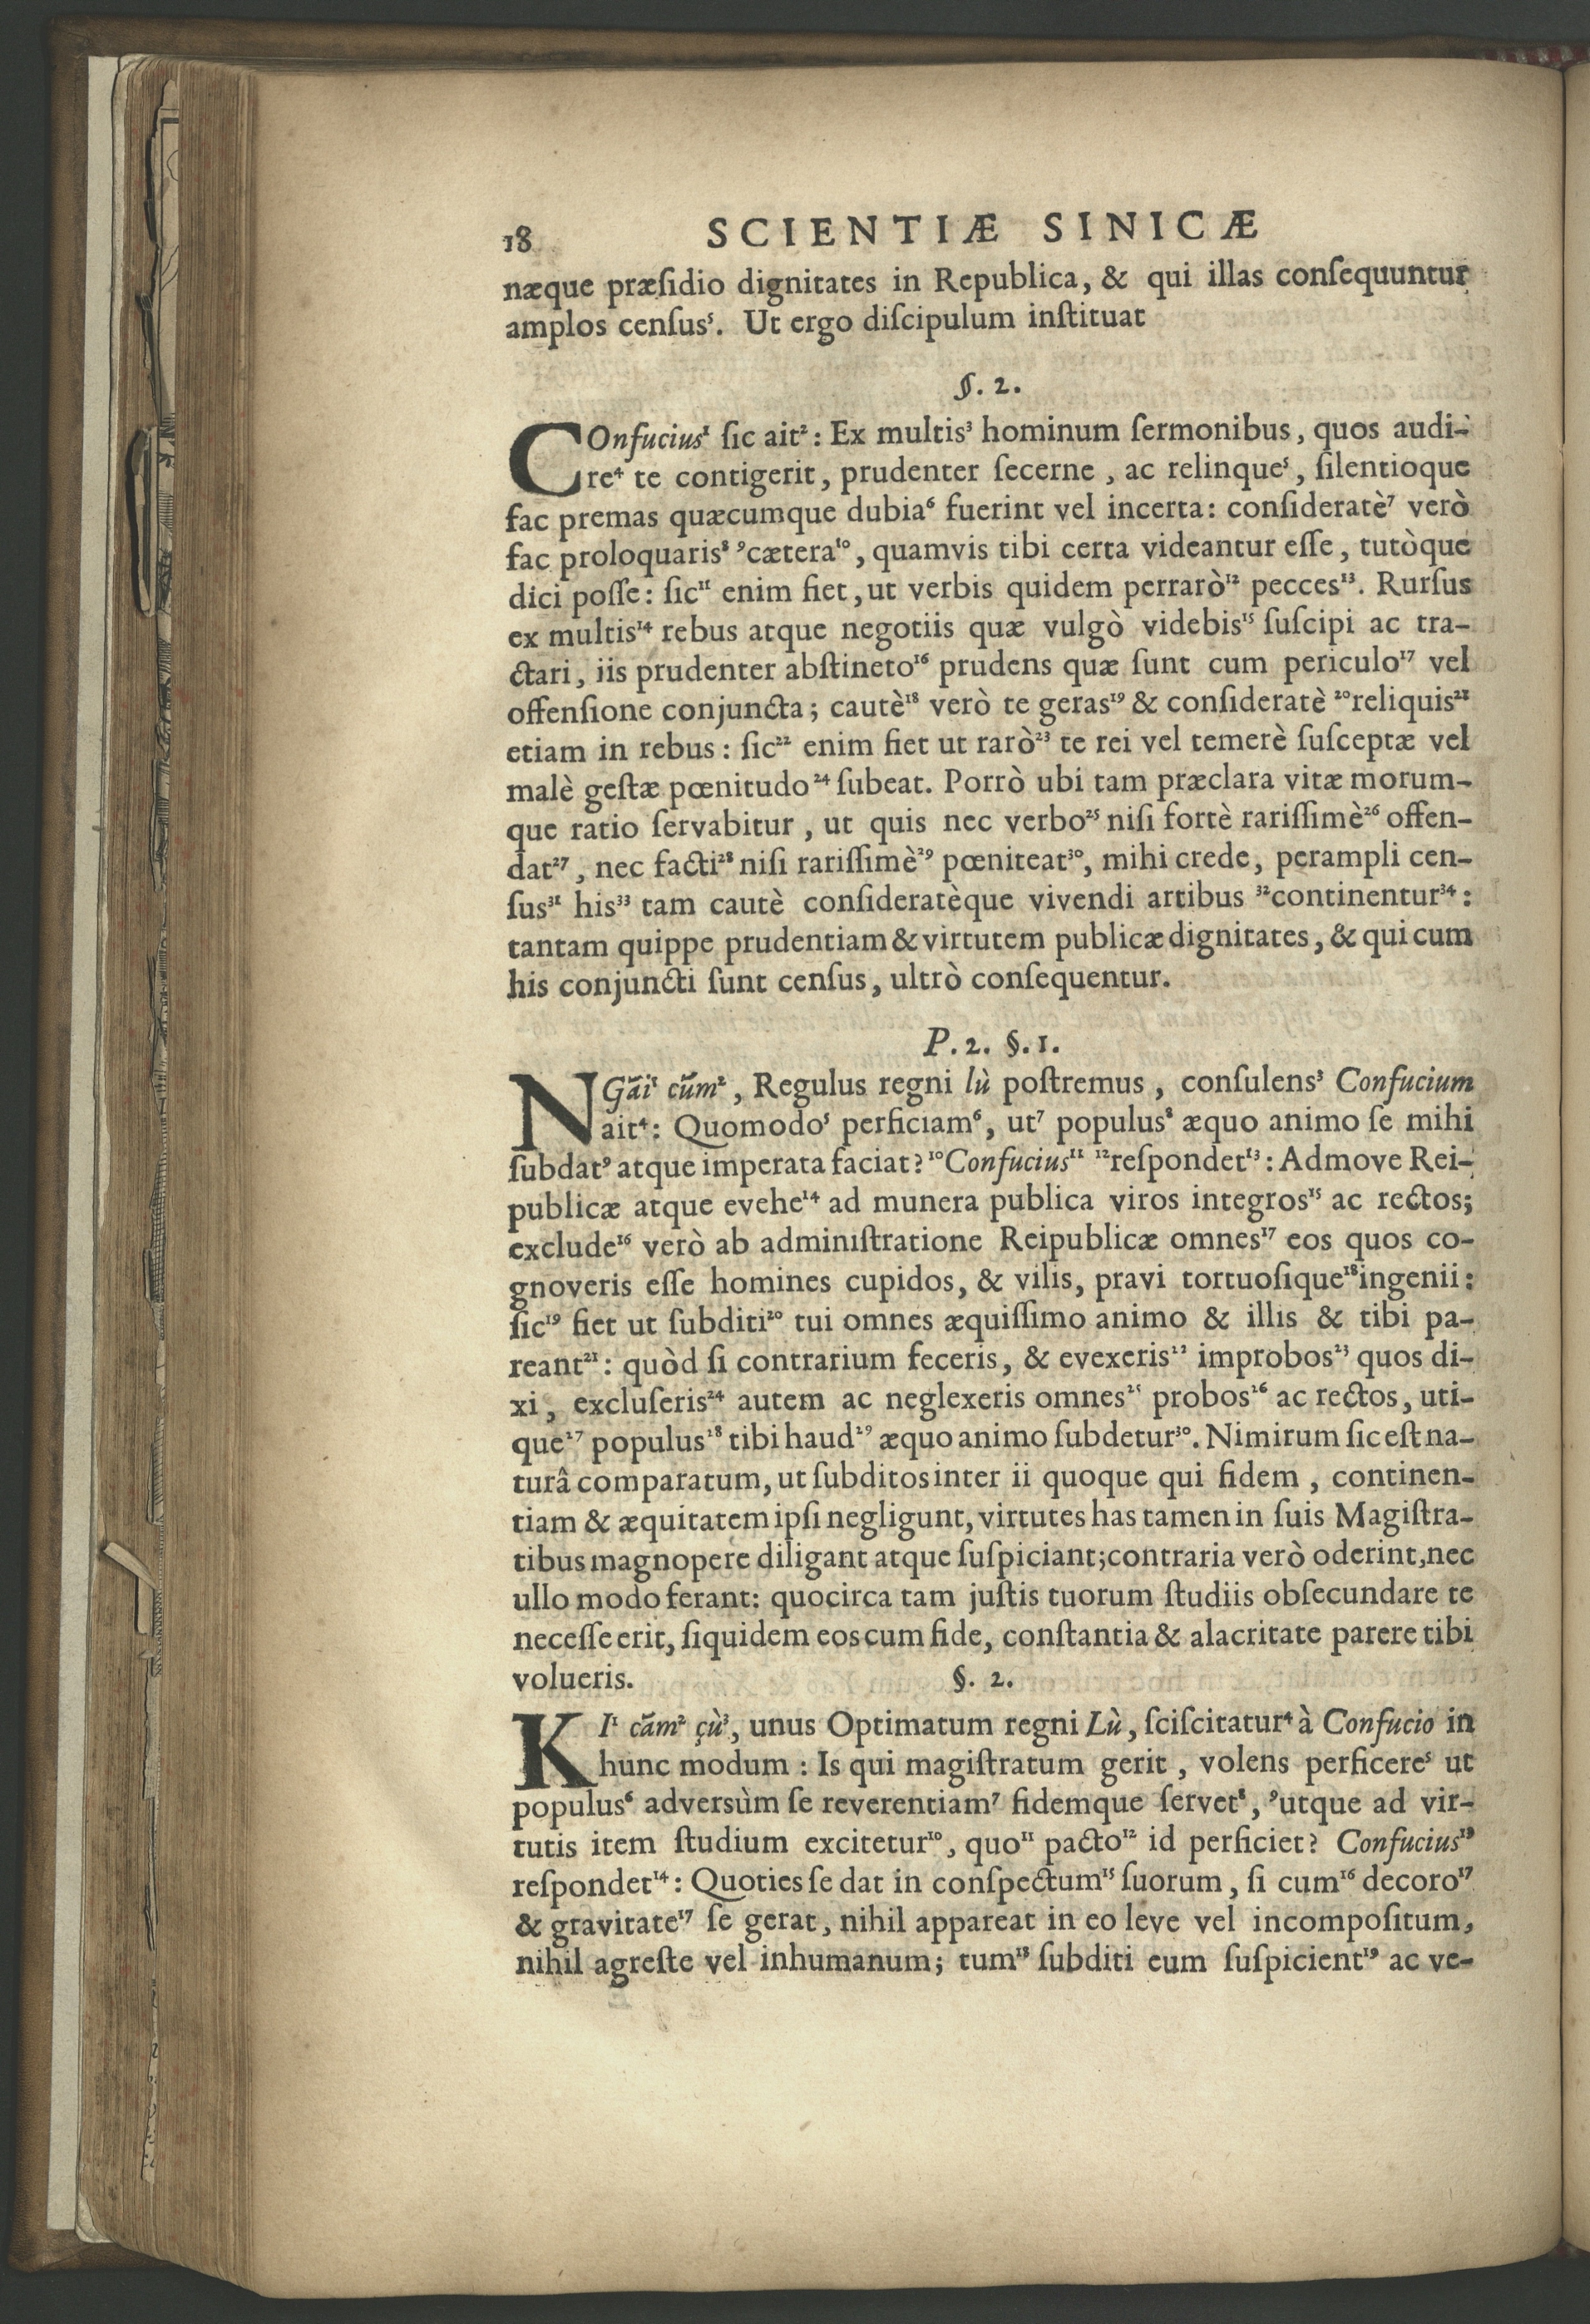 18 SCIENTIÆ SINICÆ
næque præſidio dignitates in Republica, & qui illas conſequuntur
amplos cenſus⁵. Ut ergo diſcipulum inſtituat
§. 2.
COnfucius¹ ſic ait²: Ex multis³ hominum ſermonibus, quos audi-
re⁴ te contigerit, prudenter ſecerne, ac relinque⁵, ſilentioque
fac premas quæcumque dubia⁶ fuerint vel incerta: conſideratè⁷ verò
fac proloquaris⁸ ⁹cætera¹⁰, quamvis tibi certa videantur eſſe, tutòque
dici poſſe: ſic¹¹ enim fiet, ut verbis quidem perrarò¹² pecces¹³. Rurſus
ex multis¹⁴ rebus atque negotiis quæ vulgò videbis¹⁵ ſuſcipi ac tra-
ctari, iis prudenter abſtineto¹⁶ prudens quæ ſunt cum periculo¹⁷ vel
offenſione conjuncta; cautè¹⁸ verò te geras¹⁹ & conſideratè ²⁰reliquis²¹
etiam in rebus: ſic²² enim fiet ut rarò²³ te rei vel temerè ſuſceptæ vel
malè geſtæ pœnitudo²⁴ ſubeat. Porrò ubi tam præclara vitæ morum-
que ratio ſervabitur, ut quis nec verbo²⁵ niſi fortè rariſſimè²⁶ offen-
dat²⁷, nec facti²⁸ niſi rariſſimè²⁹ pœniteat³⁰, mihi crede, perampli cen-
ſus³¹ his³³ tam cautè conſideratèque vivendi artibus ³²continentur³⁴:
tantam quippe prudentiam & virtutem publicæ dignitates, & qui cum
his conjuncti ſunt cenſus, ultrò conſequentur.
P. 2. §. 1.
NGāi¹ cūm², Regulus regni lù poſtremus, conſulens³ Confucium
ait⁴: Quomodo⁵ perficiam⁶, ut⁷ populus⁸ æquo animo ſe mihi
ſubdat⁹ atque imperata faciat? ¹⁰Confucius¹¹ ¹²reſpondet¹³: Admove Rei-
publicæ atque evehe¹⁴ ad munera publica viros integros¹⁵ ac rectos;
exclude¹⁶ verò ab adminiſtratione Reipublicæ omnes¹⁷ eos quos co-
gnoveris eſſe homines cupidos, & vilis, pravi tortuoſique¹⁸ ingenii:
ſic¹⁹ fiet ut ſubditi²⁰ tui omnes æquiſſimo animo & illis & tibi pa-
reant²¹: quòd ſi contrarium feceris, & evexeris²² improbos²³ quos di-
xi, excluſeris²⁴ autem ac neglexeris omnes²⁵ probos²⁶ ac rectos, uti-
que²⁷ populus²⁸ tibi haud²⁹ æquo animo ſubdetur³⁰. Nimirum ſic eſt na-
turâ comparatum, ut ſubditos inter ii quoque qui fidem, continen-
tiam & æquitatem ipſi negligunt, virtutes has tamen in ſuis Magiſtra-
tibus magnopere diligant atque ſuſpiciant; contraria verò oderint, nec
ullo modo ferant: quocirca tam juſtis tuorum ſtudiis obſecundare te
neceſſe erit, ſiquidem eos cum fide, conſtantia & alacritate parere tibi
volueris. §. 2.
KI¹ cām² çù³, unus Optimatum regni Lù, ſciſcitatur⁴ à Confucio in
hunc modum: Is qui magiſtratum gerit, volens perficere⁵ ut
populus⁶ adversùm ſe reverentiam⁷ fidemque ſervet⁸, ⁹utque ad vir-
tutis item ſtudium excitetur¹⁰, quo¹¹ pacto¹² id perficiet? Confucius¹³
reſpondet¹⁴: Quoties ſe dat in conſpectum¹⁵ ſuorum, ſi cum¹⁶ decoro¹⁷
& gravitate¹⁷ ſe gerat, nihil appareat in eo leve vel incompoſitum,
nihil agreſte vel inhumanum; tum¹⁸ ſubditi eum ſuſpicient¹⁹ ac ve-